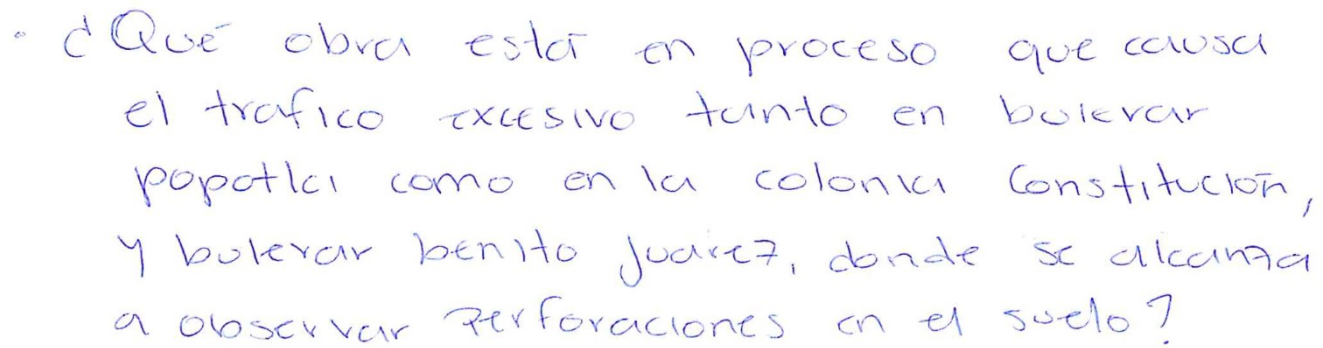 • ¿Qué obra está en proceso que causa
el trafico excesivo tanto en bulevar
popotla como en la colonia Constitución,
y bulevar benito Juarez, donde se alcanza
a observar perforaciones en el suelo?